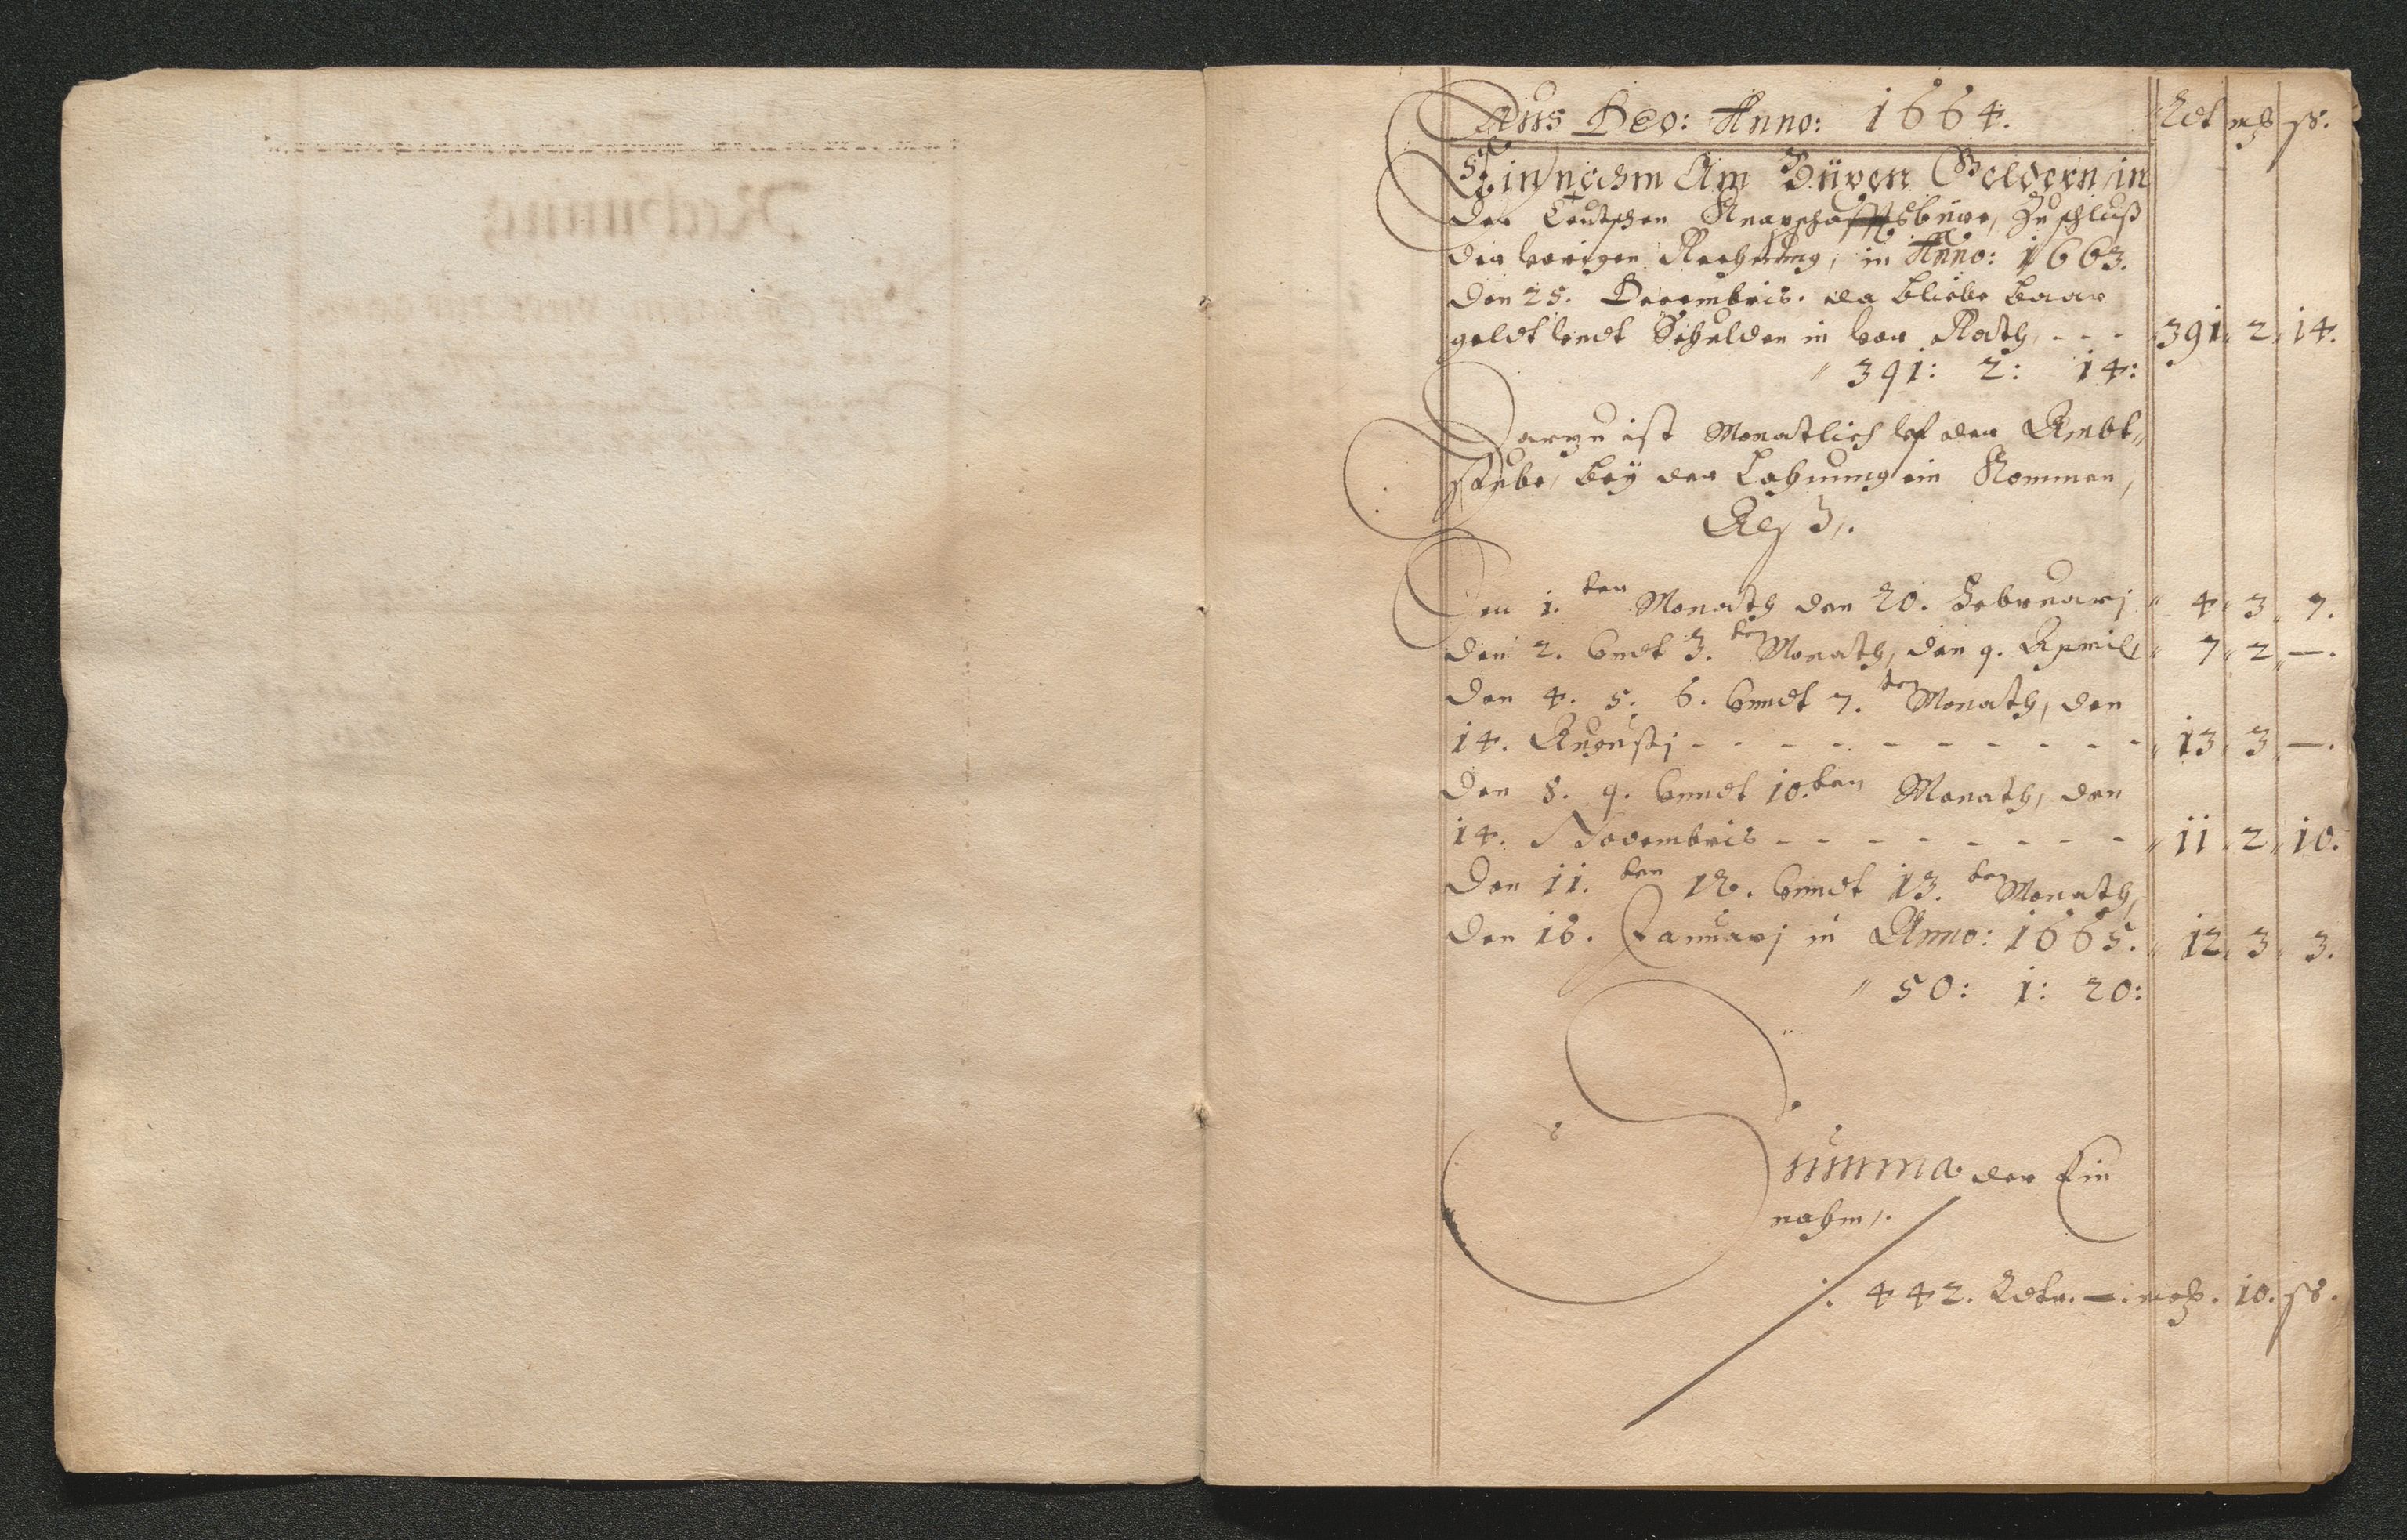 Laus Deo: Anno: 1664.
Rdt m℔ ß.
Einnehm Am Büxen Geldern, in
der Teutschen Knapschafftsbüxe, Zu schluß
der vorigen Rechnung, in Anno: 1663.
den 25. Decembris. da bliebe baar
geldt vndt Schulden in vor Rath, - - - 391 2 14.
391: 2: 14:
Darzu ist Monatlich vf der Ambt„
stube, bey der Lohnung ein Kommen,
Alß,.
Den 1. ten Monath den 20. Februarj 4 3 7.
den 2. vndt 3. ten Monath, den 9. Aprill 7 2 —.
den 4. 5. 6. vnndt 7. ten Monath, den
14. Augustj - - - - - - - - - - 13 3 —.
den 8. 9. vnndt 10. ten Monath, den
14. Novembris - - - - - - - - 11 2 10.
den 11. ten 12. vnndt 13. ten Monath,
den 16. Januarj in Anno: 1665. 12 3 3.
50: 1: 20:
Summa der Ein
nahm,.
442. Rdtr. —. m℔. 10. ß.
Rechnung